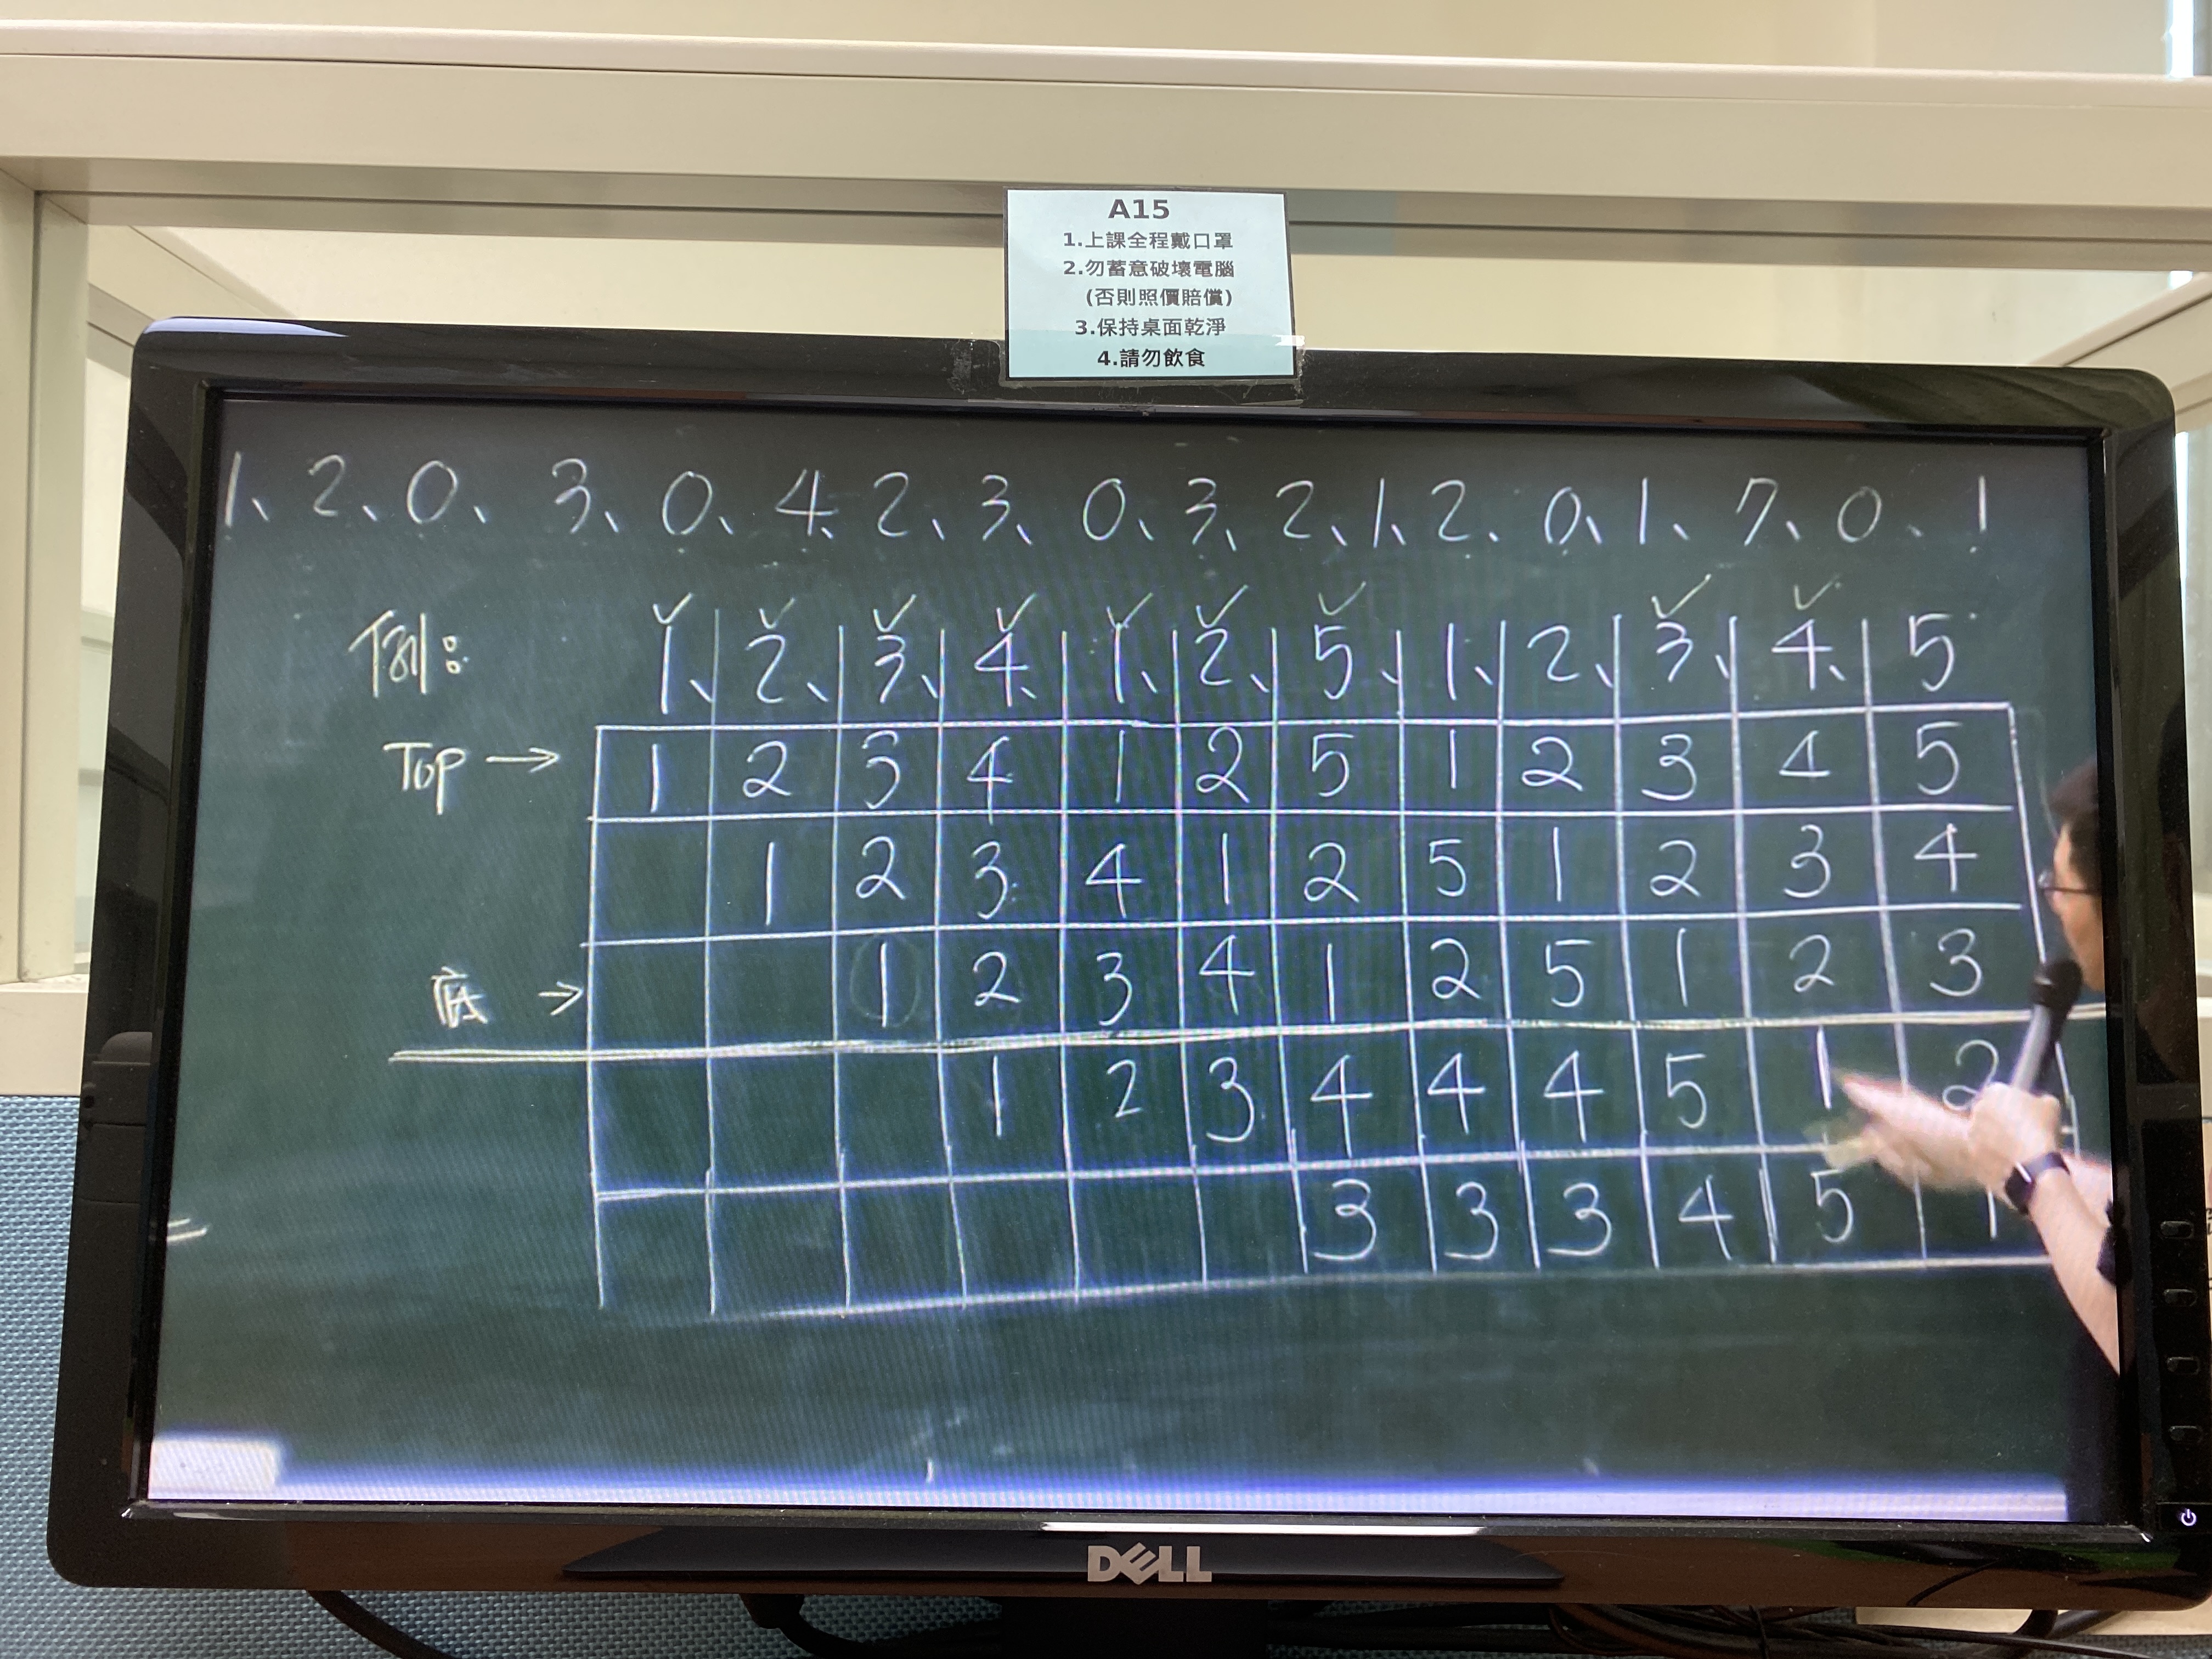 A15
1.上課全程戴口罩
2.勿蓄意破壞電腦
(否則照價賠償)
3.保持桌面乾淨
4.請勿飲食
1、2、0、3、0、4、2、3、0、3、2、1、2、0、1、7、0、1
例: 1、2、3、4、1、2、5、1、2、3、4、5
Top → 1 2 3 4 1 2 5 1 2 3 4 5
1 2 3 4 1 2 5 1 2 3 4
底 → 1 2 3 4 1 2 5 1 2 3
1 2 3 4 4 4 5 1 2
3 3 3 4 5 1
DELL